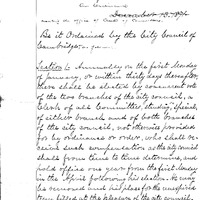 An Ordinance
December 13, 1871
Be it Ordained by the City Council of
Cambridge,
Section 1. Annually on the first Monday
of January, or within thirty days thereafter,
there shall be elected by concurrent vote
of the two branches of the city council, a
Clerk of all Committees, standing, special,
of either branch and of both branches
of the city council, not otherwise provided
for by ordinance or order, who shall re-
ceive such compensation as the city council
shall from time to time determine, and
hold office one year from the first Monday
in the April following his election. He may
be removed and his place for the unexpired
term filled at the pleasure of the city council.